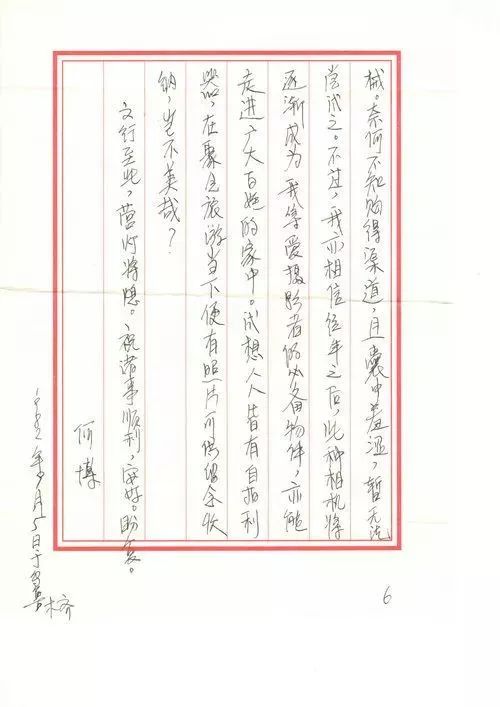 械。奈何不知购得渠道，且囊中羞涩，暂无法
尝试之。不过，我亦相信年之后，此种相机将
逐渐成为我等爱摄影者的必备物件，亦能
走进广大百姓的家中。试想人人皆有自拍利
器，在聚会旅游当下便有照片可供留念收
纳，岂不美哉？
文行至此，营灯将熄。祝诸事顺利，安好。盼复。
何博
年9月5日于乌鲁木齐
6